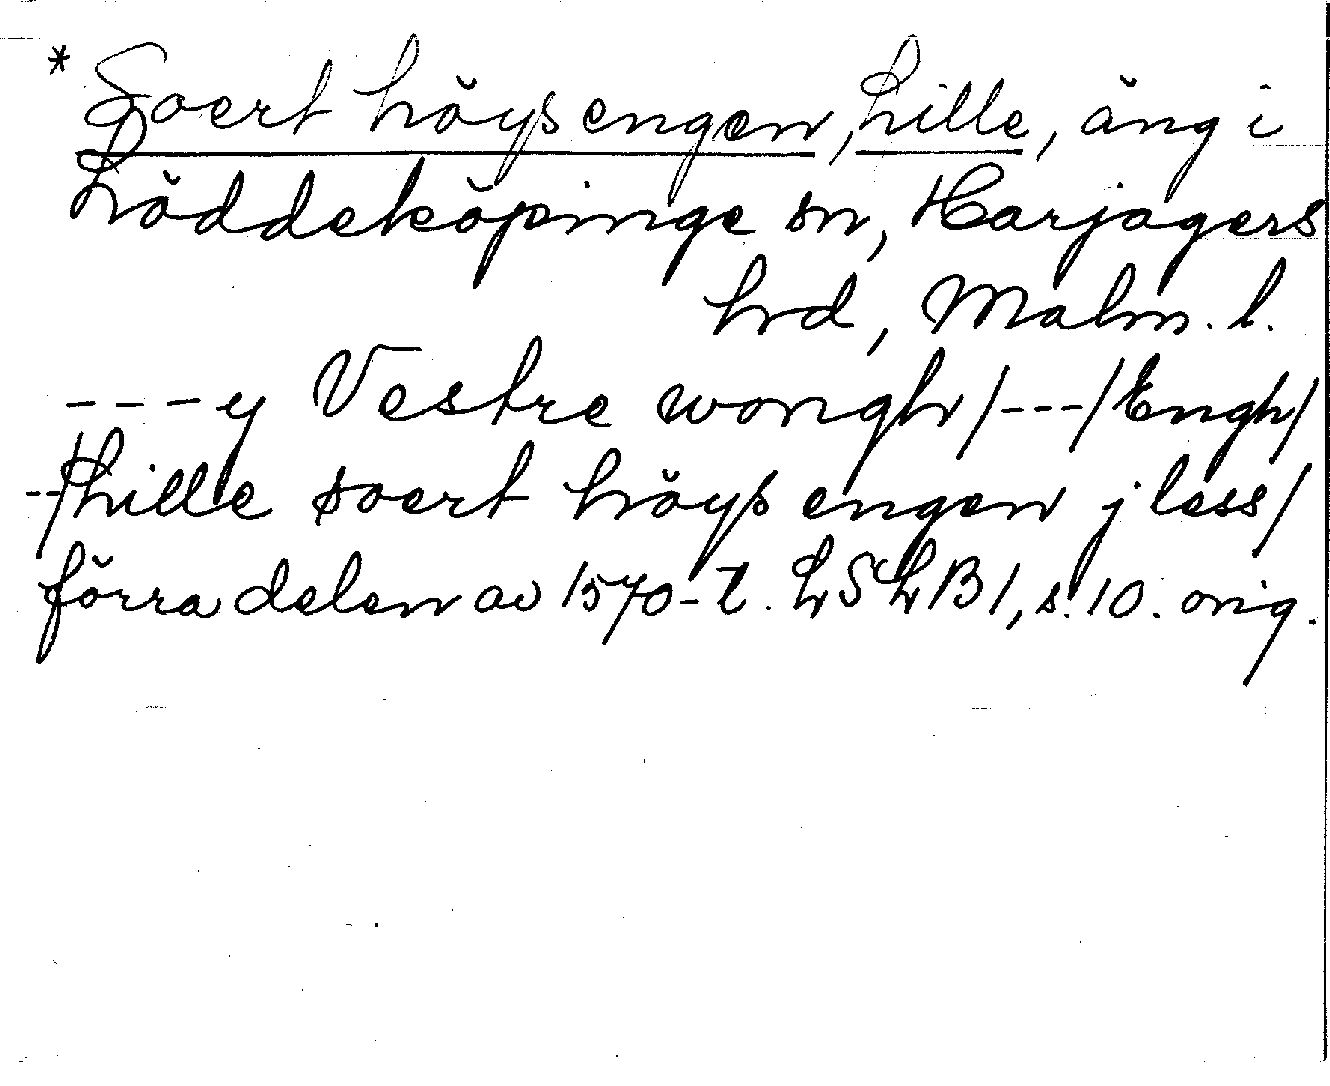 * Soert höys engen, Lille, äng i
Löddeköpinge sn, Harjagers
hrd, Malm. l.
---y Vestre wongh/---/Engh/
--/Lille soert höys engen j less/
förra delen av 1570-t. LSLB1, s. 10. orig.